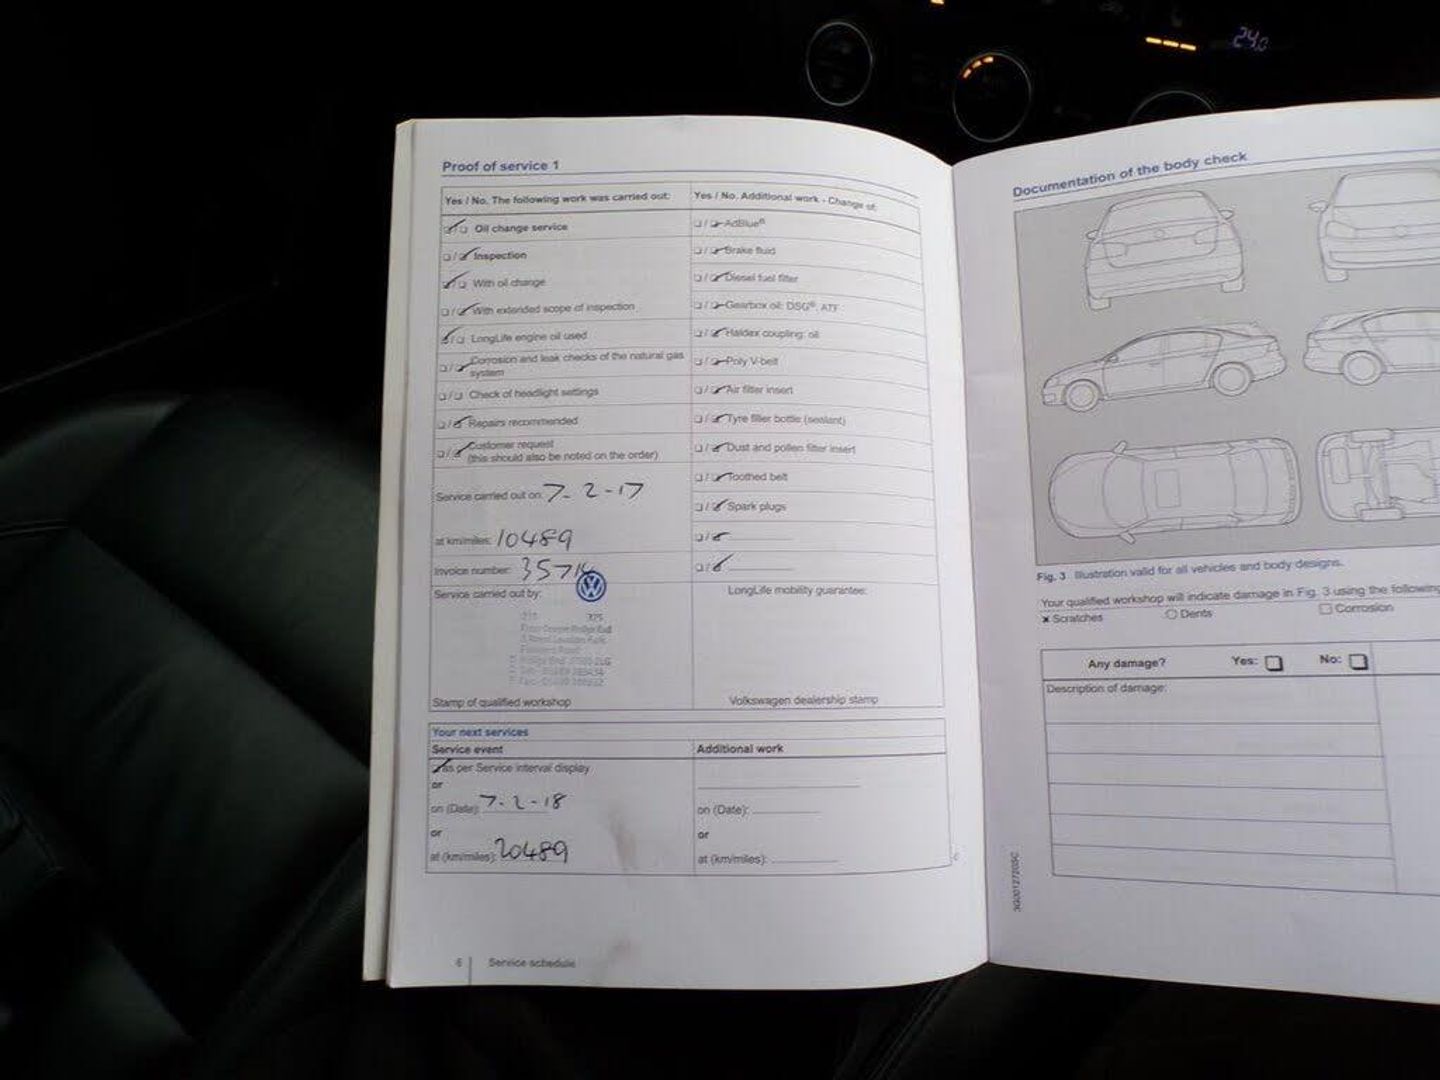 24.0
Proof of service 1
Yes / No. The following work was carried out:
Oil change service
Inspection
With oil change
With extended scope of inspection
LongLife engine oil used
Corrosion and leak checks of the natural gas
system
Check of headlight settings
Repairs recommended
Customer request
(this should also be noted on the order)
Service carried out on: 7-2-17
at km/miles: 10489
Invoice number:
Service carried out by:
Stamp of qualified workshop
Yes / No. Additional work - Change of:
AdBlue®
Brake fluid
Diesel fuel filter
Gearbox oil: DSG®, ATF
Haldex coupling: oil
Poly V-belt
Air filter insert
Tyre filler bottle (sealant)
Dust and pollen filter insert
Toothed belt
Spark plugs
LongLife mobility guarantee:
Volkswagen dealership stamp
Your next services
Service event
as per Service interval display
or
on (Date): 7-2-18
or
at (km/miles): 20489
Additional work
on (Date):
or
at (km/miles):
6 | Service schedule
Documentation of the body check
Fig. 3 Illustration valid for all vehicles and body designs.
Your qualified workshop will indicate damage in Fig. 3 using the following
× Scratches ○ Dents □ Corrosion
Any damage? Yes: □ No: □
Description of damage: